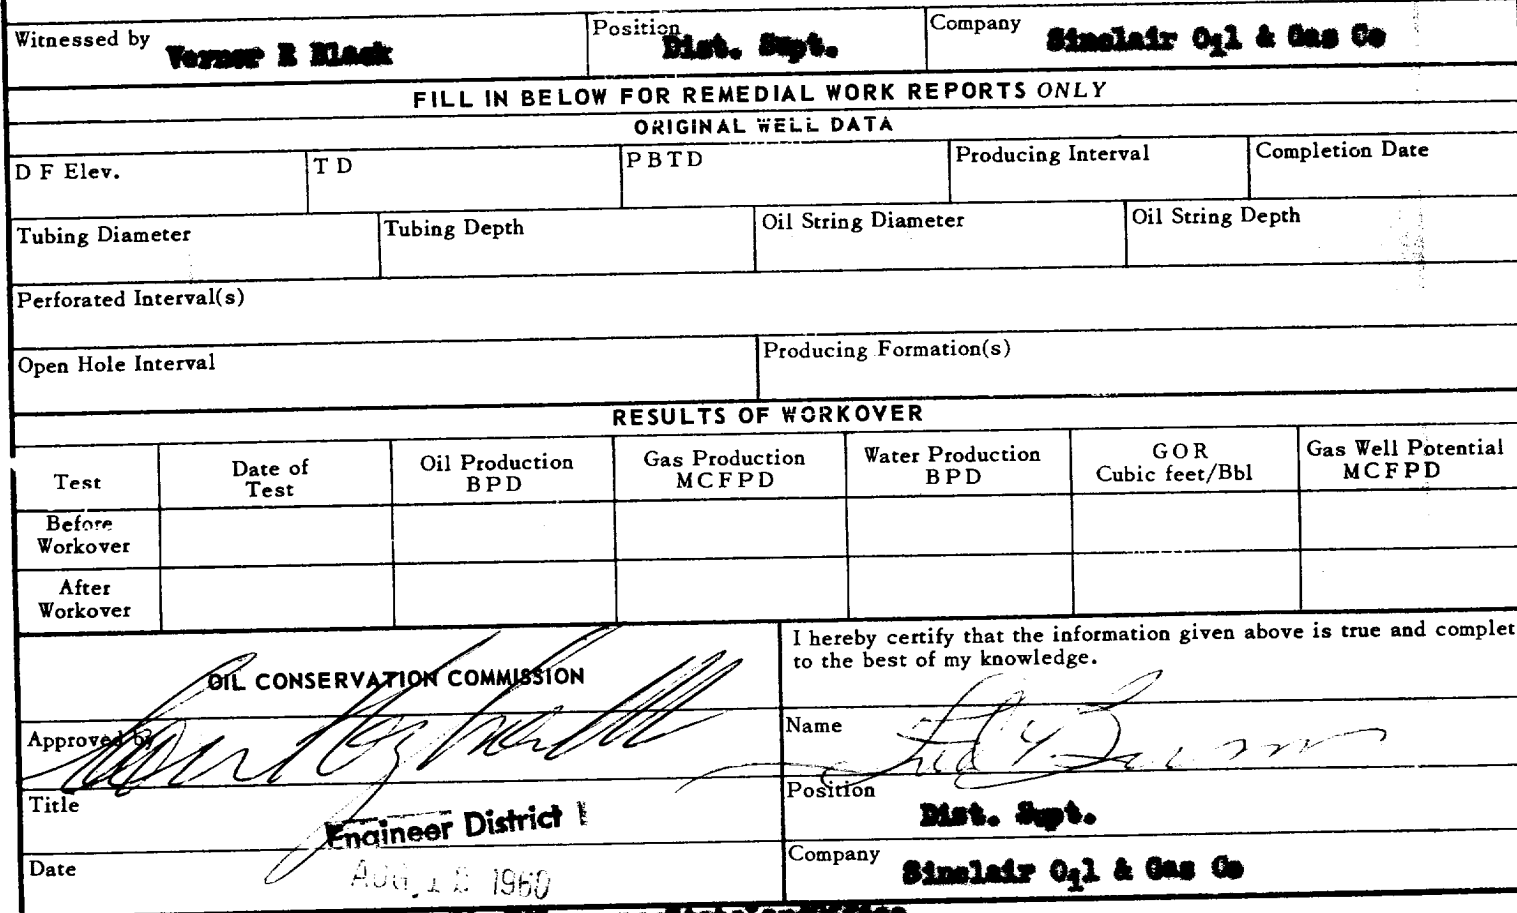 Witnessed by Verner R Black Position Dist. Supt. Company Sinclair Oil & Gas Co
FILL IN BELOW FOR REMEDIAL WORK REPORTS ONLY
ORIGINAL WELL DATA
D F Elev. T D P B T D Producing Interval Completion Date
Tubing Diameter Tubing Depth Oil String Diameter Oil String Depth
Perforated Interval(s)
Open Hole Interval Producing Formation(s)
RESULTS OF WORKOVER
Test
Date of
Test
Oil Production
BPD
Gas Production
MCFPD
Water Production
BPD
GOR
Cubic feet/Bbl
Gas Well Potential
MCFPD
Before
Workover
After
Workover
OIL CONSERVATION COMMISSION
I hereby certify that the information given above is true and complet
to the best of my knowledge.
Approved by
Name
Title Engineer District 1
Position Dist. Supt.
Date AUG 1960
Company Sinclair Oil & Gas Co